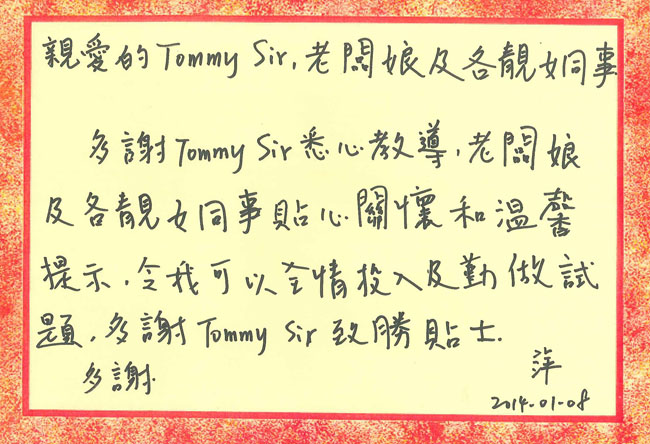 親愛的Tommy Sir, 老闆娘及各靚女同事
多謝Tommy Sir悉心教導, 老闆娘
及各靚女同事貼心關懷和溫馨
提示, 令我可以全情投入及勤做試
題, 多謝Tommy Sir致勝貼士.
多謝.
萍
2014-01-08